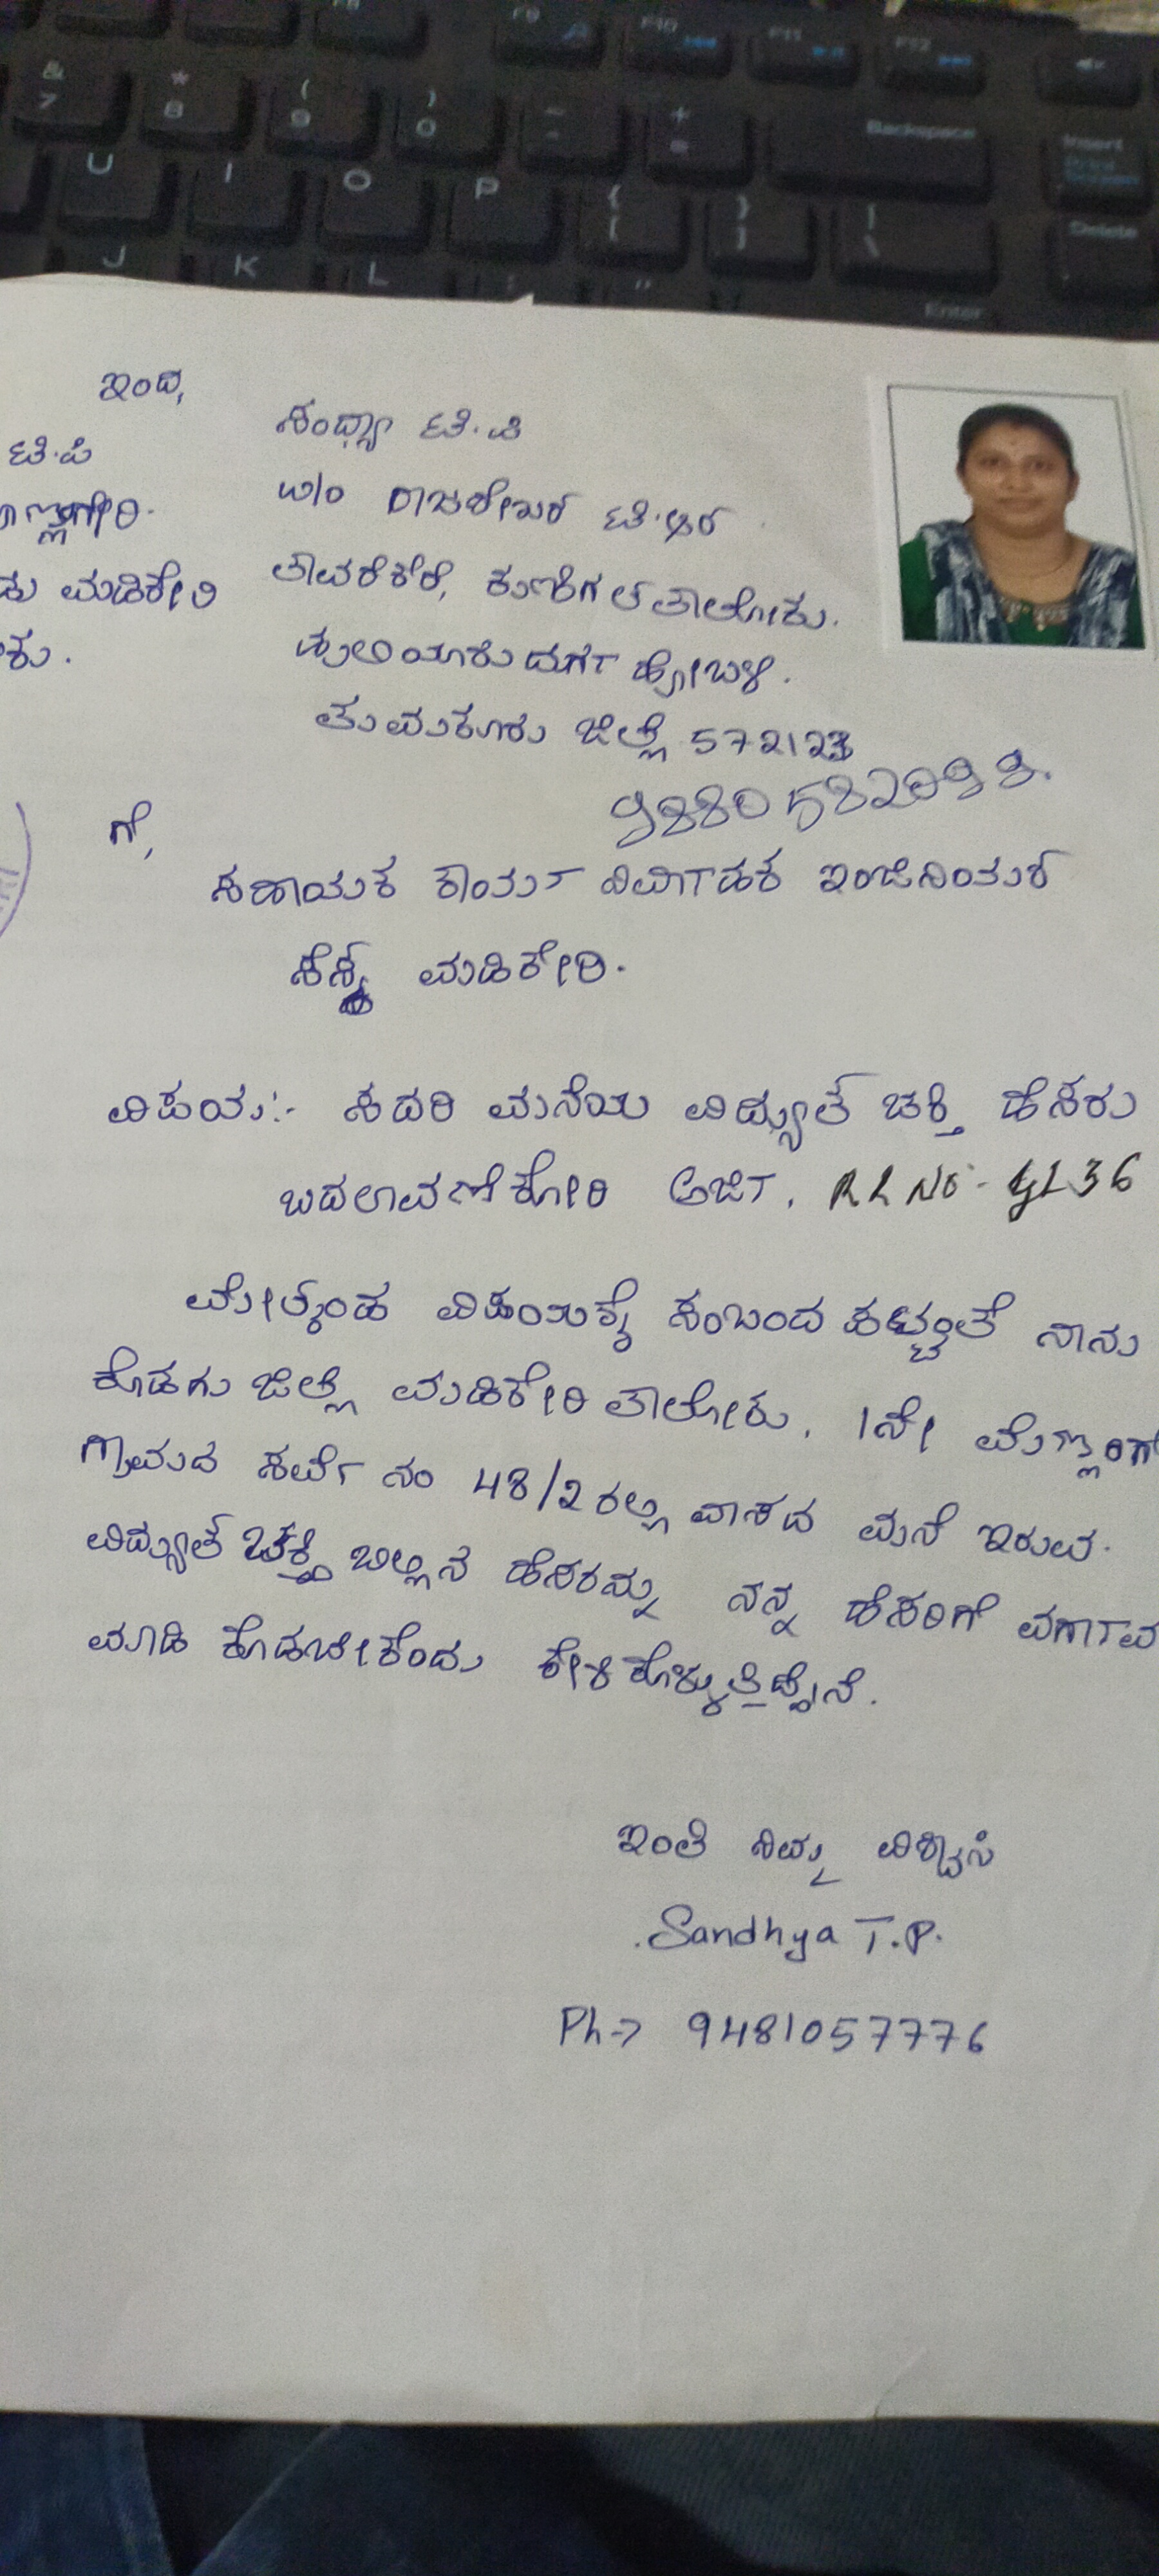 & 7 * 8 ( 9 ) 0 - + = Backspace Insert
F9 F10 F11 F12
U I O P { [ } ] | \ Delete
J K L Enter
ಇಂದ,
ಸಂಧ್ಯಾ ಟಿ.ಪಿ
W/o ರಾಜಶೇಖರ ಟಿ.ಆರ
ತಾವರೆಕೆರೆ, ಕುಣಿಗಲ ತಾಲೋಕು.
ಹುಲಿಯೂರುದುರ್ಗ ಹೋಬಳಿ.
ತುಮಕೂರು ಜಿಲ್ಲೆ 572123
ಟಿ.ಪಿ
ಮಡಿಕೇರಿ
ಗೆ,
ಸಹಾಯಕ ಕಾರ್ಯ ನಿರ್ವಾಹಕ ಇಂಜಿನಿಯರ್
ಸೆಸ್ಕ್ ಮಡಿಕೇರಿ.
ವಿಷಯ:- ಸದರಿ ಮನೆಯ ವಿದ್ಯುತ್ ಚಕ್ತಿ ಹೆಸರು
ಬದಲಾವಣೆ ಕೋರಿ ಅರ್ಜಿ. RR No - GL36
ಮೇಲ್ಕಂಡ ವಿಷಯಕ್ಕೆ ಸಂಬಂದ ಪಟ್ಟಂತೆ ನಾನು
ಕೊಡಗು ಜಿಲ್ಲೆ ಮಡಿಕೇರಿ ತಾಲೋಕು, 1ನೇ
ಗ್ರಾಮದ ಸರ್ವೆ ನಂ 48/2 ರಲ್ಲಿ ವಾಸದ ಮನೆ ಇರುವ.
ವಿದ್ಯುತ್ ಚಕ್ತಿ ಬಿಲ್ಲಿನ ಹೆಸರನ್ನು ನನ್ನ ಹೆಸರಿಗೆ ವರ್ಗಾವ
ಮಾಡಿ ಕೊಡಬೇಕೆಂದು ಕೇಳಿಕೊಳ್ಳುತ್ತಿದ್ದೇನೆ.
ಇಂತಿ ನಿಮ್ಮ ವಿಶ್ವಾಸಿ
Sandhya T.P.
Ph-> 9481057776